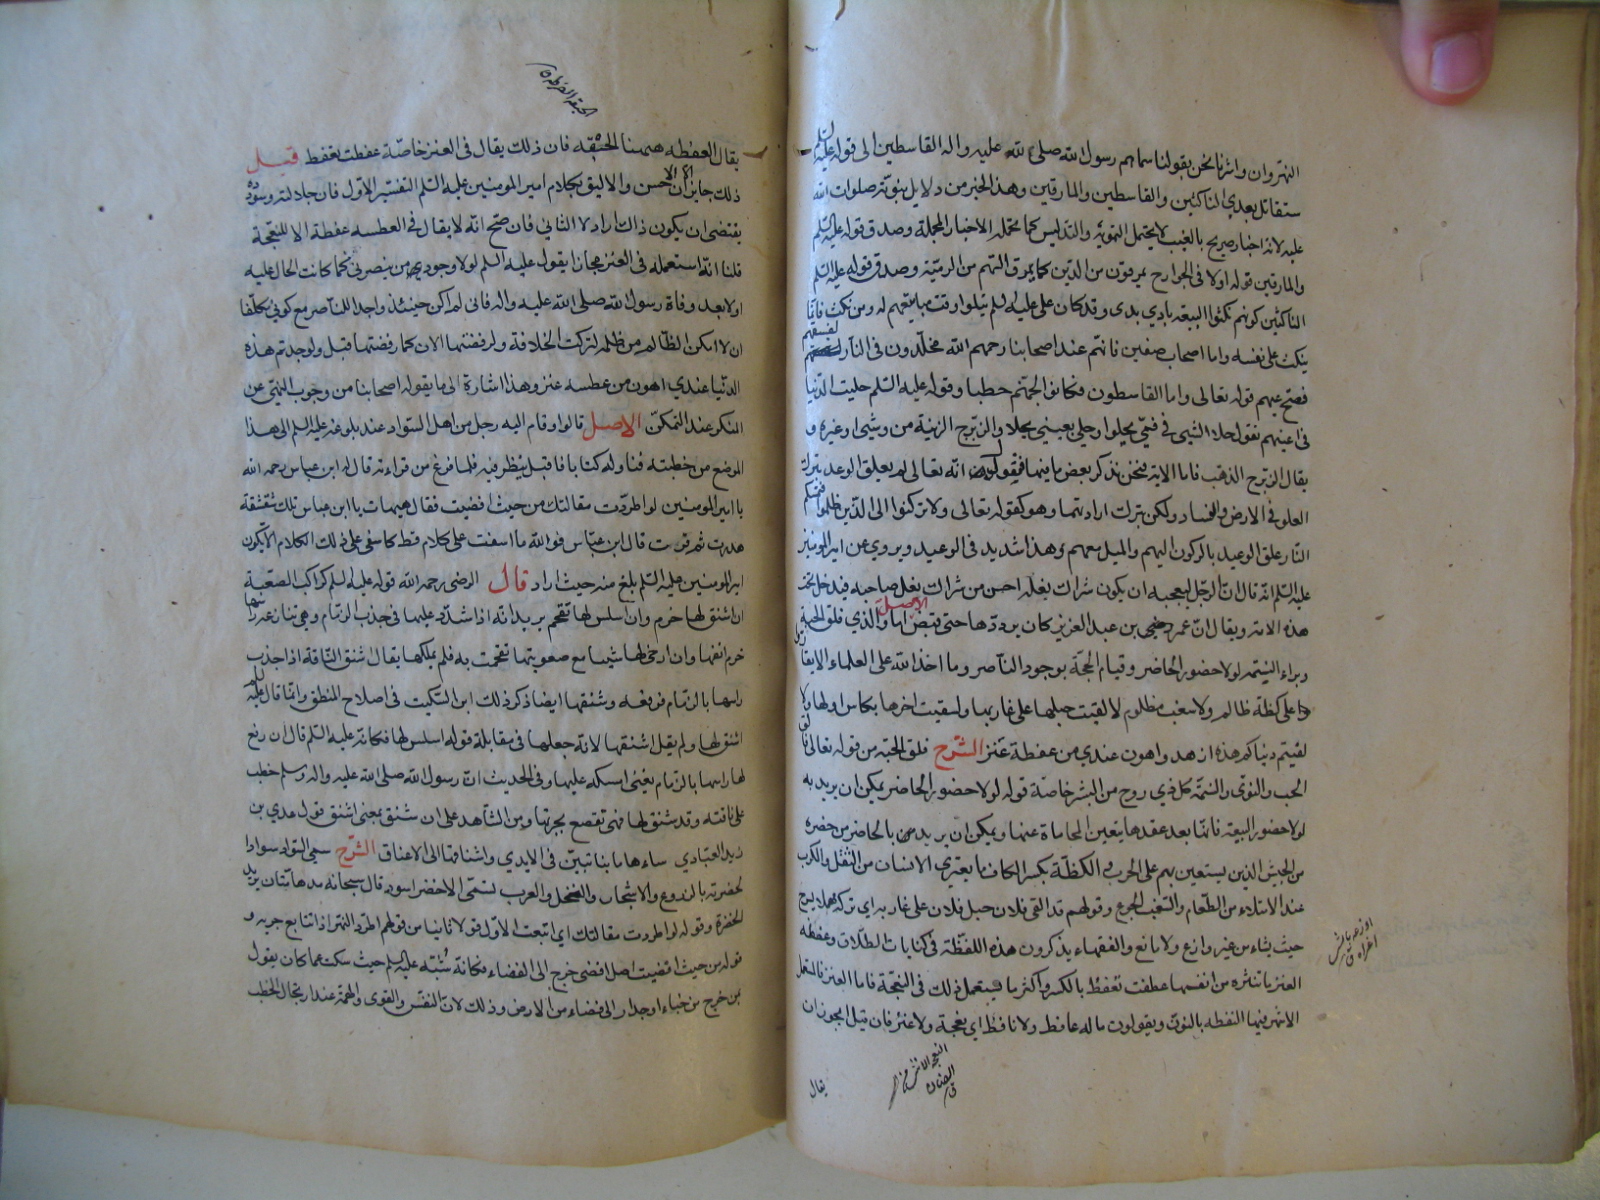 النهروان واشرنا نحن بقولنا سماهم رسول الله صلى الله عليه واله القاسطين الى قوله عليه السلم
ستقاتل بعدي الناكثين والقاسطين والمارقين وهذا الخبر من دلايل نبوته صلوات الله
عليه لانه اخبار صريح بالغيب لا يحتمل التمويه والتدليس كما تحتمله الاخبار المجملة وصدق قوله عليه السلم
والمارقين قوله اولا في الخوارج يمرقون من الدين كما يمرق السهم من الرمية وصدق قوله عليه السلم
الناكثين كونهم نكثوا البيعة بادي بدى وقد كان على عليه السلم يتلوا وقت مبايعتهم له ومن نكث فانما
ينكث على نفسه واما اصحاب صفين فانهم عند اصحابنا رحمهم الله مخلدون في النار لفسقهم
فصح عنهم قوله تعالى واما القاسطون فكانوا لجهنم حطبا وقوله عليه السلم حليت الدنيا
في اعينهم نقول حلا الشيى في فمى يحلوا وحلى بعيني يحلا والزبرج الزينة من وشيى او غيره و
يقال الزبرج الذهب فاما الاية فنحن نذكر بعض ما فيها فنقول انه تعالى لم يعلق الوعد بترك
العلو في الارض والفساد ولكن بترك ارادتهما وهو كقوله تعالى ولا تركنوا الى الذين ظلموا فتمسكم
النار علق الوعيد بالركون اليهم والميل معهم وهذا شديد في الوعيد ويروي عن امير المومنين
عليه السلم انه قال ان الرجل ليعجبه ان يكون شراك نعله احسن من شراك نعل صاحبه فيدخل تحت
هذه الاية ويقال ان عمر بن عبد العزيز كان يرددها حتى قبض الاصل اما والذي فلق الحبة
وبراء النسمة لولا حضور الحاضر وقيام الحجة بوجود الناصر وما اخذ الله على العلماء الا يقاروا
على كظة ظالم ولا سغب مظلوم لالقيت حبلها على غاربها ولسقيت اخرها بكاس اولها ولا
لفيتم دنياكم هذه ازهد واهون عندي من عفطة عنز الشرح فلق الحبة من قوله تعالى فالق
الحب والنوى والنسمة كل ذي روح من البشر خاصة قوله لولا حضور الحاضر يمكن ان يريد به
لولا حضور البيعة فانها بعد عقدها يتعين المحاماة عنها ويمكن ان يريد بالحاضر من حضره
من الجيش الذين يستعين بهم على الحرب والكظة بكسر الكاف ما يعتري الانسان من الثقل والكرب
عند الامتلاء من الطعام والسغب الجوع وقولهم قد القى فلان حبل فلان على غاربه اي تركه هملا يسرح
حيث يشاء من غير وازع ولا مانع والفقهاء يذكرون هذه اللفظة في كنايات الطلاق وعفطة
العنز ما تنثره من انفها عطفت تعفط بالكسر واكثر ما يستعمل ذلك في النعجة فاما العنز فالمستعمل
الاشهر فيها النفطة بالنون ويقولون ماله عافط ولا نافط اي نعجة ولا عنز فان قيل ايجوز ان
يقال
يقال العفطة ههنا الحبقة فان ذلك يقال في العنز خاصة عفطت تعفط قيل
ذلك جايز الا ان الاحسن والاليق بكلام امير المومنين عليه السلم التفسير الاول فان جلالته وسودده
يقتضى ان يكون ذاك اراد لا الثاني فان صح انه لا يقال في العطسه عفطة الا للنعجة
قلنا انه استعمله في العنز مجازا يقول عليه السلم لولا وجود من ينصرني لا كما كانت الحال عليه
اولا بعد وفاة رسول الله صلى الله عليه واله فانى لم اكن حينئذ واجدا للناصر مع كوني مكلفا
ان لا امكن الظالم من ظلمه لتركت الخلافة ولرفضتها الان كما رفضتها قبل ولوجدتم هذه
الدنيا عندي اهون من عطسه عنز وهذا اشارة الى ما يقوله اصحابنا من وجوب النهى عن
المنكر عند التمكن الاصل قالوا وقام اليه رجل من اهل السواد عند بلوغه عليه السلم الى هذا
الموضع من خطبته فناوله كتابا فاقبل ينظر فيه فلما فرغ من قراءته قال له ابن عباس رحمه الله
يا امير المومنين لو اطردت مقالتك من حيث افضيت فقال هيهات يا ابن عباس تلك شقشقة
هدرت ثم قرت قال ابن عباس فوالله ما اسفت على كلام قط كاسفي على ذلك الكلام الا يكون
امير المومنين عليه السلم بلغ منه حيث اراد قال الرضى رحمه الله قوله عليه السلم كراكب الصعبة
ان اشنق لها خرم وان اسلس لها تقحم يريد انه اذا شدد عليها في جذب الزمام وهي تنازعه راسها
خرم انفها وان ارخى لها شيئا مع صعوبتها تقحمت به فلم يملكها يقال اشنق الناقة اذا جذب
راسها بالزمام فرفعه وشنقها ايضا ذكر ذلك ابن السكيت في اصلاح المنطق وانما قال عليه السلم
اشنق لها ولم يقل اشنقها لانه جعلها في مقابلة قوله اسلس لها فكانه عليه السلم قال ان رفع
لها راسها بالزمام يعنى امسكه عليها وفي الحديث ان رسول الله صلى الله عليه واله وسلم خطب
على ناقته وقد شنق لها فهى تقصع بجرتها ومن الشاهد على ان شنق بمعنى اشنق قول عدي بن
زيد العبادي ساءها ما بنا تبين في الايدي واشناقها الى الاعناق الشرح سمى السواد سوادا
لخضرته بالزروع والاشجار والنخل والعرب تسمى الاخضر اسود قال سبحانه مدهامتان يريد
الخضرة وقوله لو اطردت مقالتك اي اتبعت الاول قولا ثانيا من قولهم اطرد النهر اذا تتابع جريه و
قوله من حيث افضيت اصل افضى خرج الى الفضاء فكانه شبهه عليه السلم حيث سكت عما كان يقول
بمن خرج من خباء او جدار الى فضاء من الارض وذلك لان النفس والقوى والهمة عند ارتجال الخطب